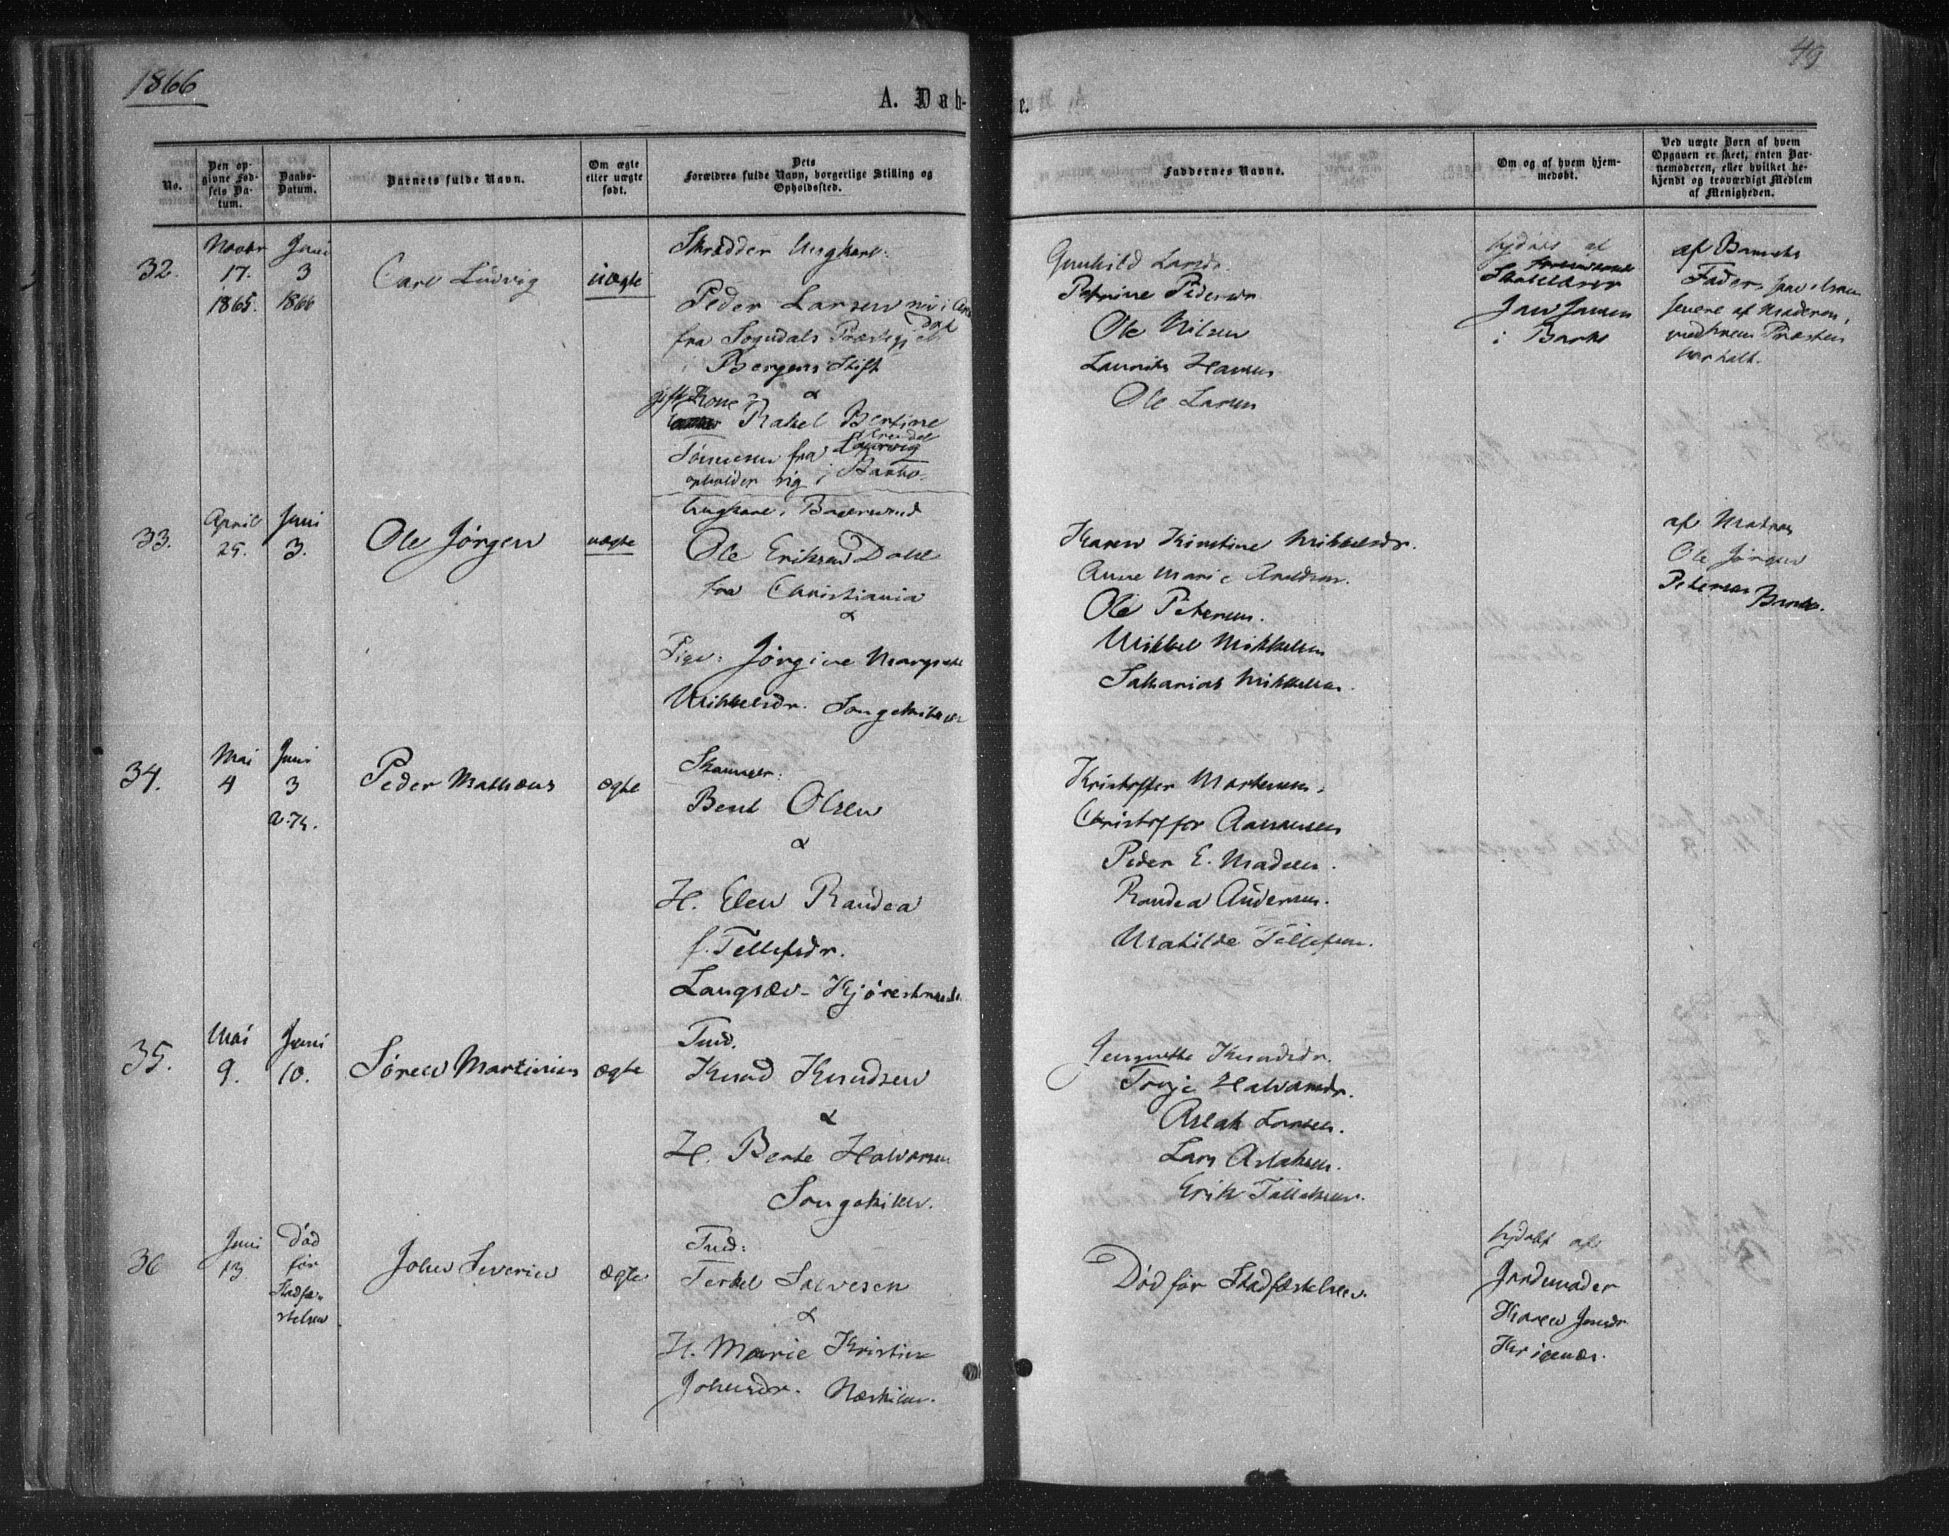 1866
49
A. Døb-
e.
No.
Den op-
givne Fød-
sels Da-
tum.
Daabs-
Datum.
Barnets fulde Navn.
Om ægte
eller uægte
født.
Dets
Forældres fulde Navn, borgerlige Stilling og
Opholdssted.
Faddernes Navne.
Om og af hvem hjem-
medøbt.
Ved uægte Børn af hvem
Opgaven er skeet, enten Bar-
nemoderen, eller hvilket be-
kjendt og troværdigt Medlem
af Menigheden.
32.
Novbr
17.
1865.
Juni
3
1866
Carl Ludvig
uægte
Skrædder Ungkarl:
Peder Larsen
fra Sogndals Præstegj
i Bergens Stift
&
gift Kone
Rakel Bertine
Tønnesen fra Arendal
opholder sig i Barbo.
Gunhild Larsdr.
Petrine Pedersdr
Ole Nilsen
Laurits Hansen
Ole Larsen
af
Jens Jensen
i Barbo
af Barnets
Fader,
senere af Moderen,
Præsten
33.
April
25.
Juni
3.
Ole Jørgen
uægte
Ungkarl,
Ole Eriksen Dahl
fra Christiania
&
Pige: Jørgine Margrethe
Mikkelsdr. Songekilen
Karen Kirstine Mikkelsdr.
Anne Marie
Ole Petersen.
Mikkel Mikkelsen
Sakarias Mikkelsen.
af
Ole Jørgen
Petersen
34.
Mai
4
Juni
3
Peder Mathæus
ægte
Bent Olsen
&
H. Elen Randea
f. Tellefsdr.
Langsæv-Kjørestrand
Kristoffer Mortensen.
Christoffer Aanonsen
Peder E. Madsen.
Randea Andersen.
Matilde Tellefsen.
35.
Mai
9.
Juni
10.
Søren Martinius
ægte
Inds.
Knud Knudsen
&
H. Berte Halvorsen
Songekilen.
Knudsdr.
Halvorsdr.
Aslak Larsen.
Lars Aslaksen.
Erik Tellefsen.
36
Juni
13.
Død
før
Stadfæ-
stelsen
John Severin
ægte
Inds:
Terkel Salvesen
&
H. Marie Kristine
Johnsdr. Næskilen.
Død før Stadfæstelsen.
hjdøbt af
Jordemoder
Karen Jensdr